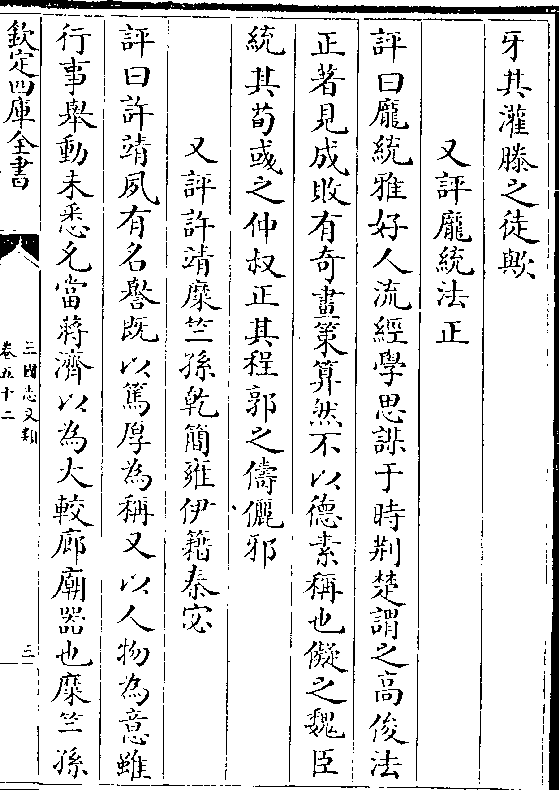 牙其灌滕之徒歟
又評龐統法正
評曰龐統雅好人流經學思謀于時荆楚謂之高俊法
正著見成敗有奇畫策算然不以德素稱也儗之魏臣
統其荀彧之仲叔正其程郭之儔儷邪
又評許靖糜竺孫乾簡雍伊籍秦宓
評曰許靖夙有名譽既以篤厚為稱又以人物為意雖
行事舉動未悉允當蔣濟以為大較廊廟器也糜竺孫
欽定四庫全書
三國志文類
卷五十二
三